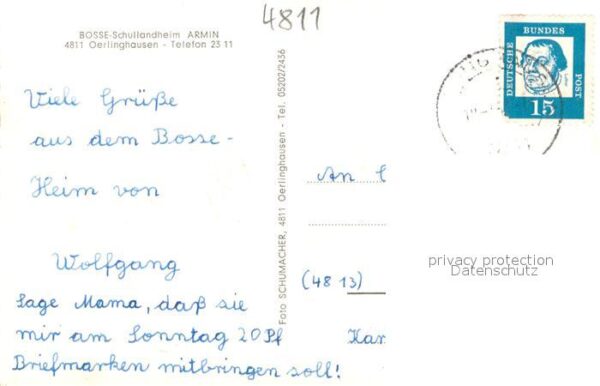 4811
BOSSE-Schullandheim ARMIN
4811 Oerlinghausen - Telefon 23 11
Viele Grüße
aus dem Bosse-
Heim von
Wolfgang
Sage Mama, daß sie
mir am Sonntag 20 Pf
Briefmarken mitbringen soll!
Foto SCHUMACHER, 4811 Oerlinghausen - Tel. 05202/2436
DEUTSCHE BUNDES POST
15
An
(48 13)
Kar
privacy protection
Datenschutz